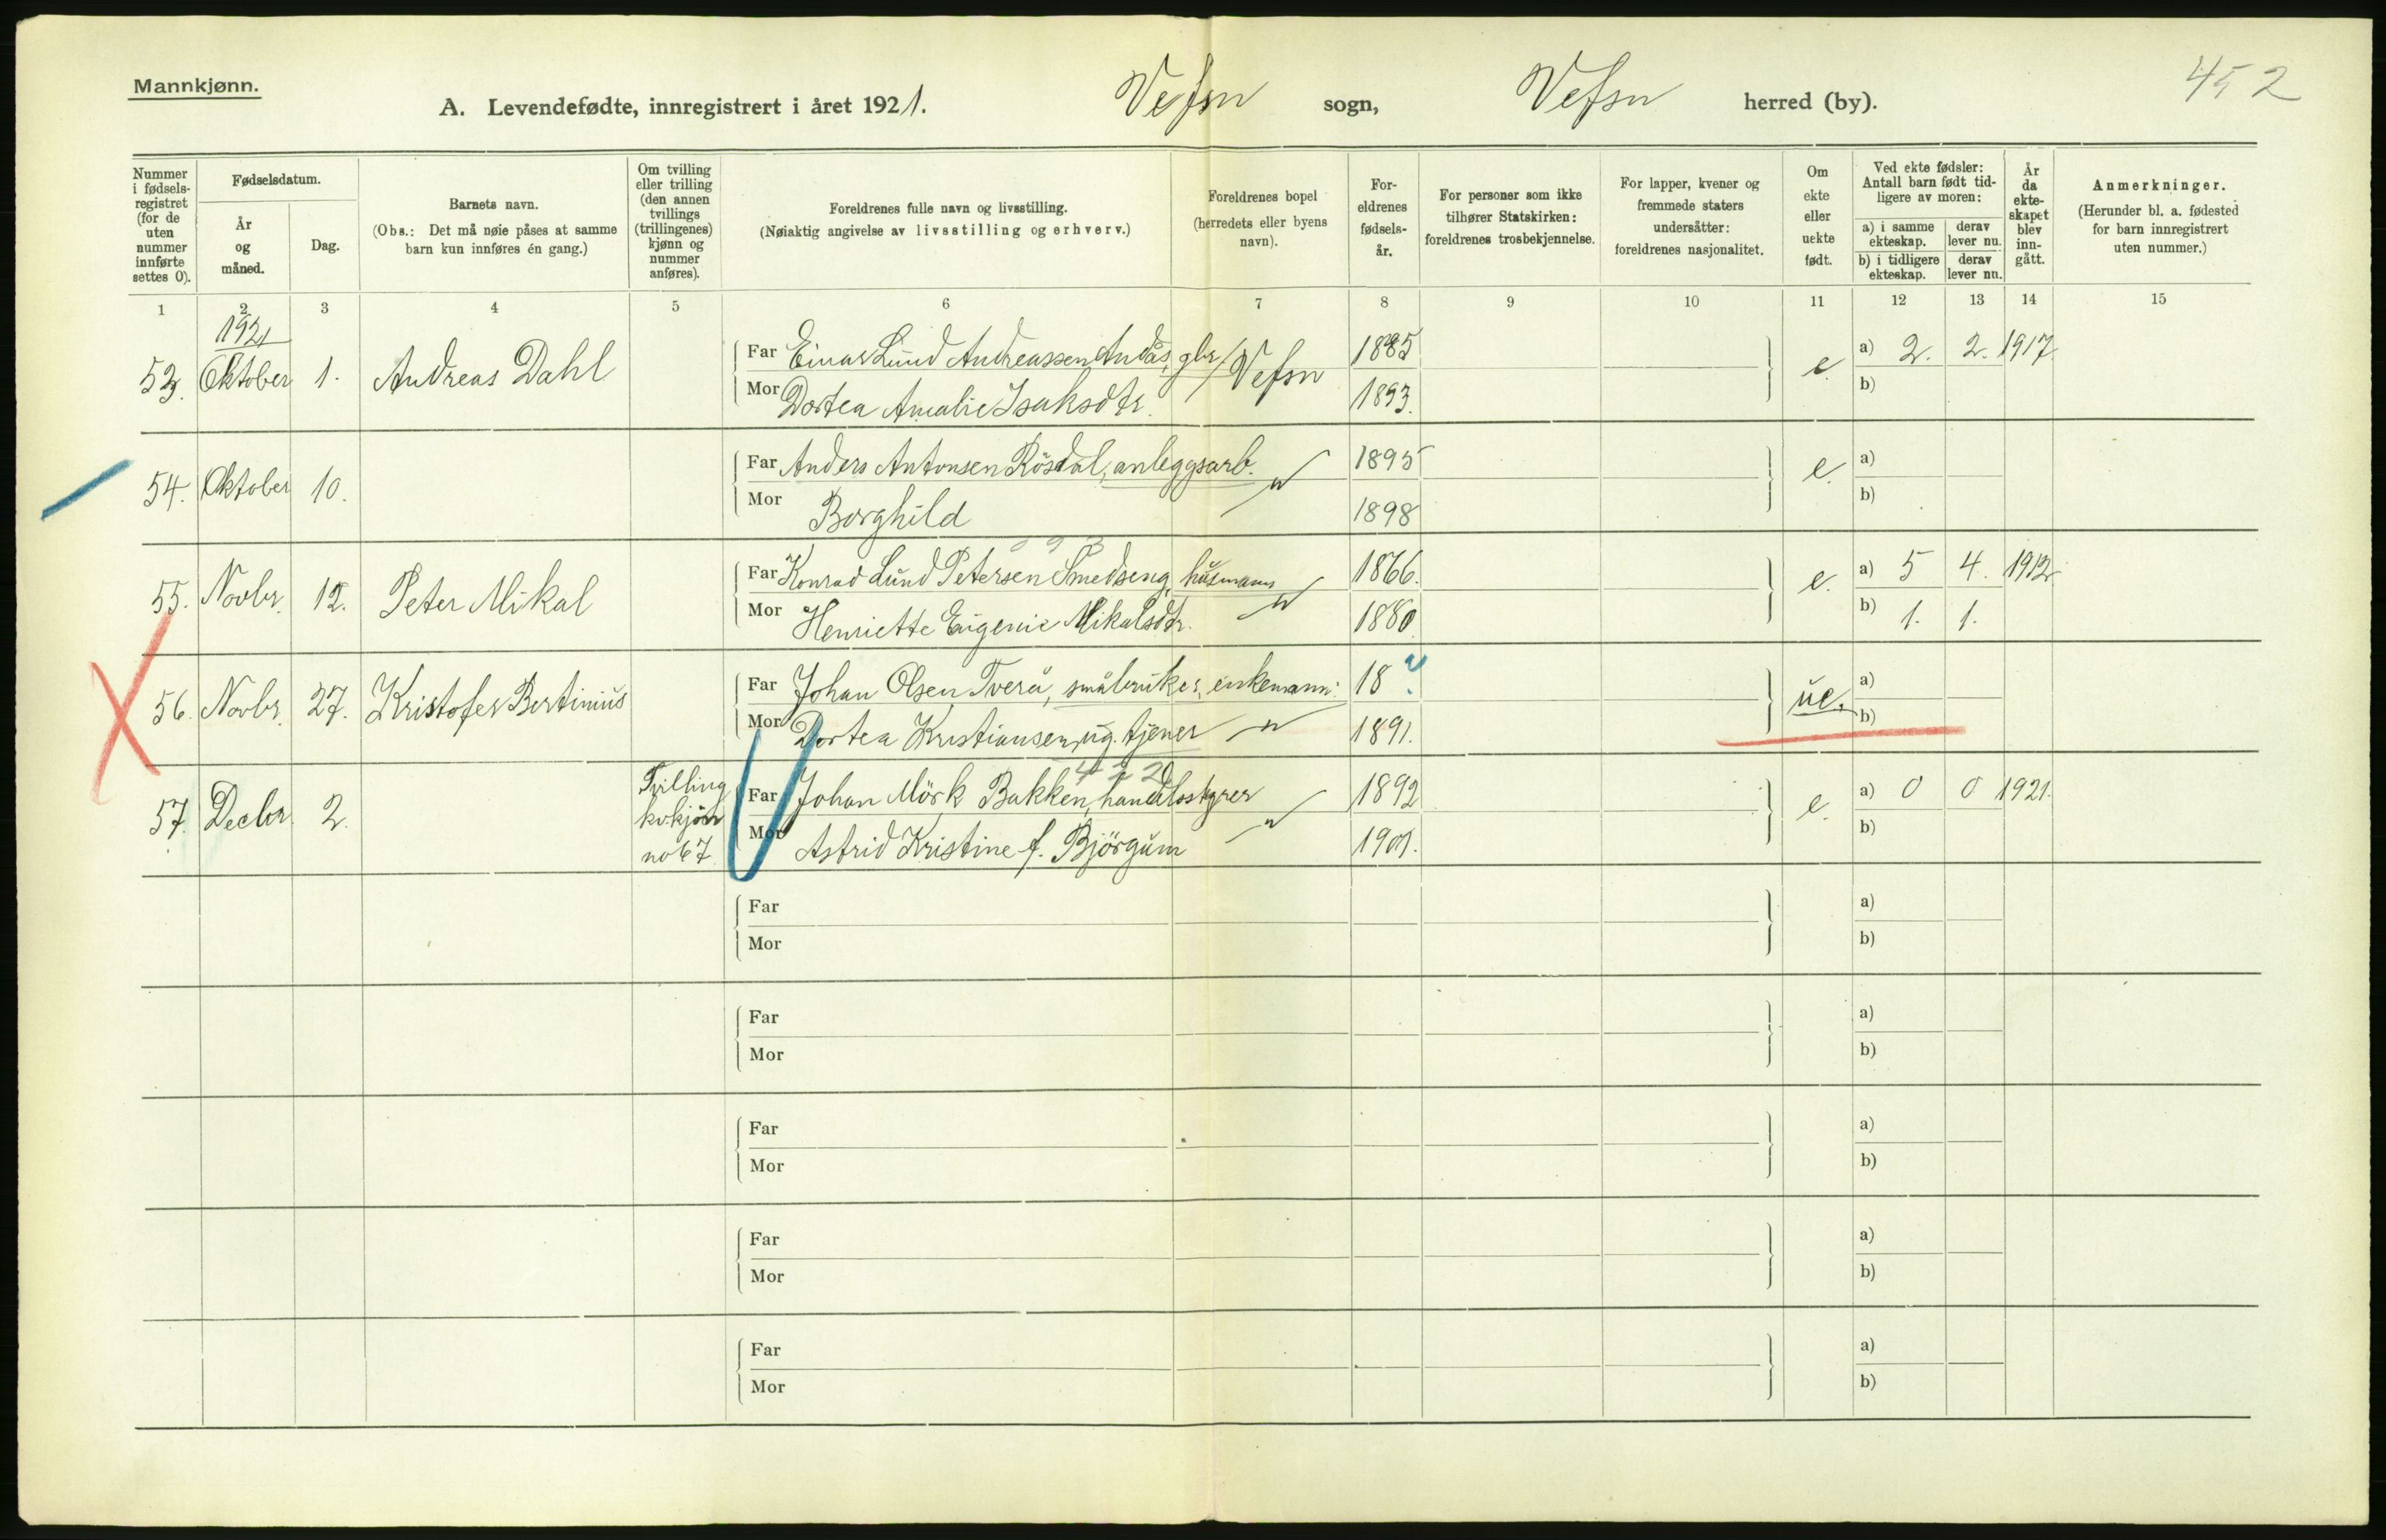 Mannkjønn.
A. Levendefødte, innregistrert i året 1921. Vefsn sogn, Vefsn herred (by). 452
Nummer i fødsels-registret (for de uten nummer innførte settes 0).
Fødselsdatum.
År og måned.
Dag.
Barnets navn.
(Obs.: Det må nøie påses at samme barn kun innføres én gang.)
Om tvilling eller trilling (den annen tvillings (trillingenes) kjønn og nummer anføres).
Foreldrenes fulle navn og livsstilling.
(Nøiaktig angivelse av livsstilling og erhverv.)
Foreldrenes bopel
(herredets eller byens navn).
For-eldrenes fødsels-år.
For personer som ikke tilhører Statskirken: foreldrenes trosbekjennelse.
For lapper, kvener og fremmede staters undersåtter: foreldrenes nasjonalitet.
Om ekte eller uekte født.
Ved ekte fødsler: Antall barn født tid-ligere av moren:
a) i samme ekteskap. derav lever nu.
b) i tidligere ekteskap. derav lever nu.
År da ekte-skapet blev inn-gått.
Anmerkninger.
(Herunder bl. a. fødested for barn innregistrert uten nummer.)
1 2 3 4 5 6 7 8 9 10 11 12 13 14 15
1921
53. Oktober 1. Andreas Dahl Far Einar Lund Andreassen Andås, gbr. Vefsn 1885 e. a) 2. 2. 1917.
Mor Dortea Amalie Isaksdtr. 1893. b)
54. Oktober 10. Far Anders Antonsen Rösdal, anleggsarb. " 1895 e. a)
Mor Borghild 1898 b)
55. Novbr. 12. Peter Mikal Far Konrad Lund Petersen Smedseng, husmann " 1866. e. a) 5 4. 1912.
Mor Henriette Eugenie Mikalsdtr. 1880. b) 1. 1.
56. Novbr. 27. Kristofer Bertinius Far Johan Olsen Tverå, småbruker, enkemann. 18 ? ue. a)
Mor Dortea Kristiansen, ug. tjener " 1891. b)
422
57. Decbr. 2. Tvilling kvkjönn no 67 Far Johan Mörk Bakken, handelsstyrer " 1892 e. a) 0 0 1921.
Mor Astrid Kristine f. Björgum 1901. b)
Far a)
Mor b)
Far a)
Mor b)
Far a)
Mor b)
Far a)
Mor b)
Far a)
Mor b)